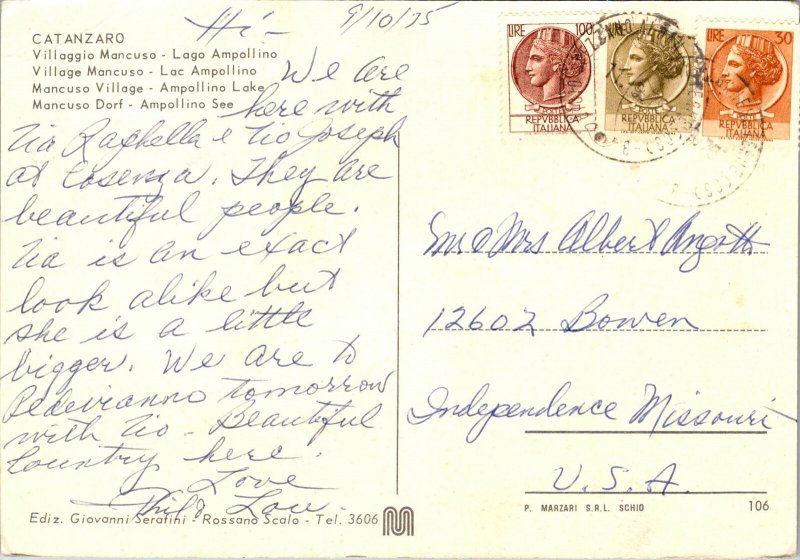 Hi- 9/10/75
CATANZARO
Villaggio Mancuso - Lago Ampollino
Village Mancuso - Lac Ampollino
Mancuso Village - Ampollino Lake
Mancuso Dorf - Ampollino See
We are
here with
Zia Raffella e Zio Joseph
at Cosenza. They are
beautiful people.
Zia is an exact
look alike but
she is a little
bigger. We are to
Pedivigliano tomorrow
with Zio - Beautiful
Country here.
Love
Phil & Lou.
Ediz. Giovanni Serafini - Rossano Scalo - Tel. 3606
LIRE 100
POSTE
REPVBBLICA
ITALIANA
POSTE
REPVBBLICA
ITALIANA
LIRE 30
POSTE
REPVBBLICA
ITALIANA
Mr & Mrs Albert Angotti
12602 Bowen
Independence Missouri
U.S.A.
P. MARZARI S.R.L. SCHIO 106